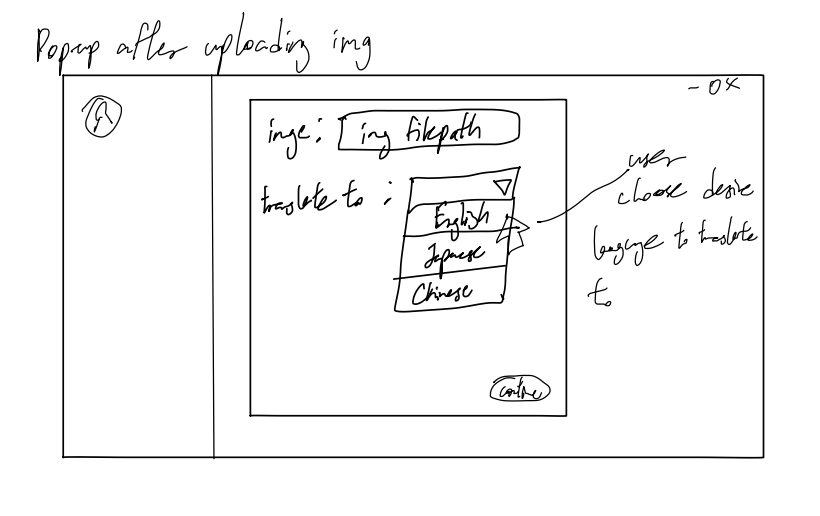 Popup after uploading img
- O X
imge: img filepath
translate to :
English
Japanese
Chinese
user
choose desire
language to translate
to